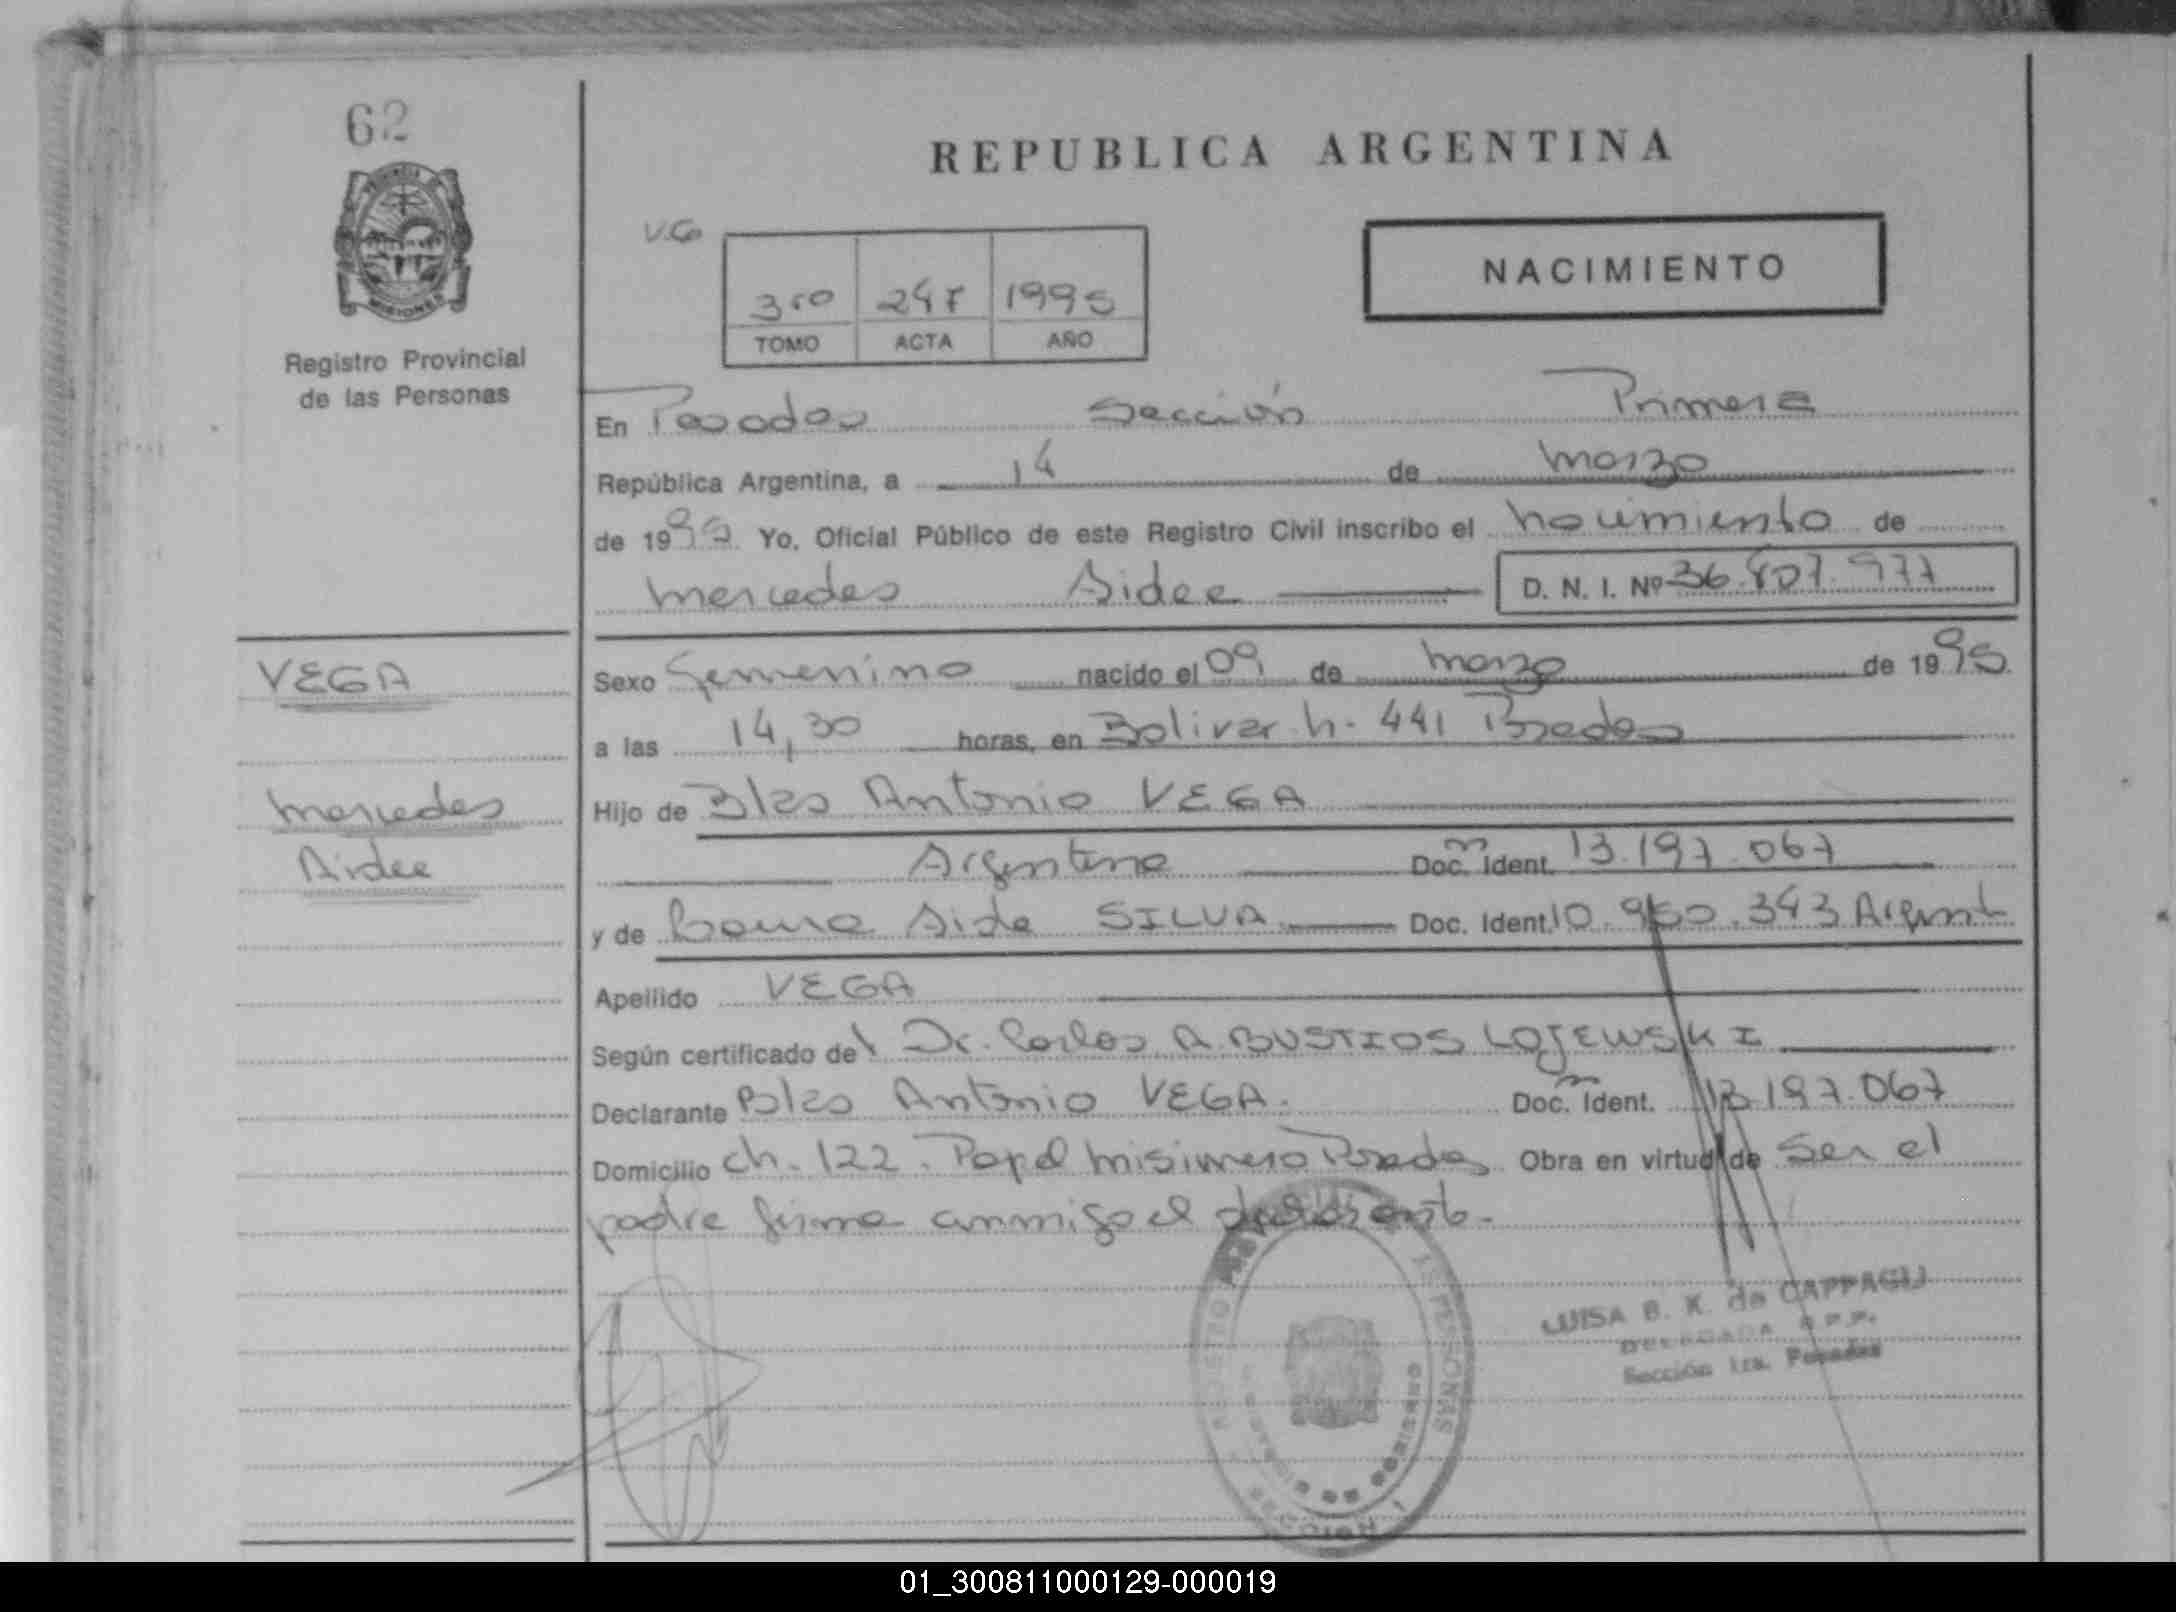 62
REPUBLICA ARGENTINA
NACIMIENTO
V.G
350 247 1995
TOMO ACTA AÑO
Registro Provincial
de las Personas
En Posadas Sección Primera
República Argentina, a 14 de marzo
de 1995 Yo, Oficial Público de este Registro Civil inscribo el nacimiento de
Mercedes Aidee D. N. I. Nº 36.807.977
VEGA
Mercedes
Aidee
Sexo Femenino nacido el 09 de marzo de 1995.
a las 14,30 horas, en Bolivar n- 441 Posadas
Hijo de Blas Antonio VEGA
Argentino Doc. Ident. 13.197.067
y de Aide SILVA Doc. Ident. 10.960.343 Argent
Apellido VEGA
Según certificado del Dr. Carlos A BUSTIOS LOJEWSKI
Declarante Blas Antonio VEGA. Doc. Ident. 13.197.067
Domicilio ch. 122. Papel misionero Posadas Obra en virtud de ser el
padre firma conmigo el
REGISTRO PERSONAS
LUISA B. K. de CAPPAGLI
DELEGADA R.P.P.
Sección 1ra. Posadas
01_300811000129-000019